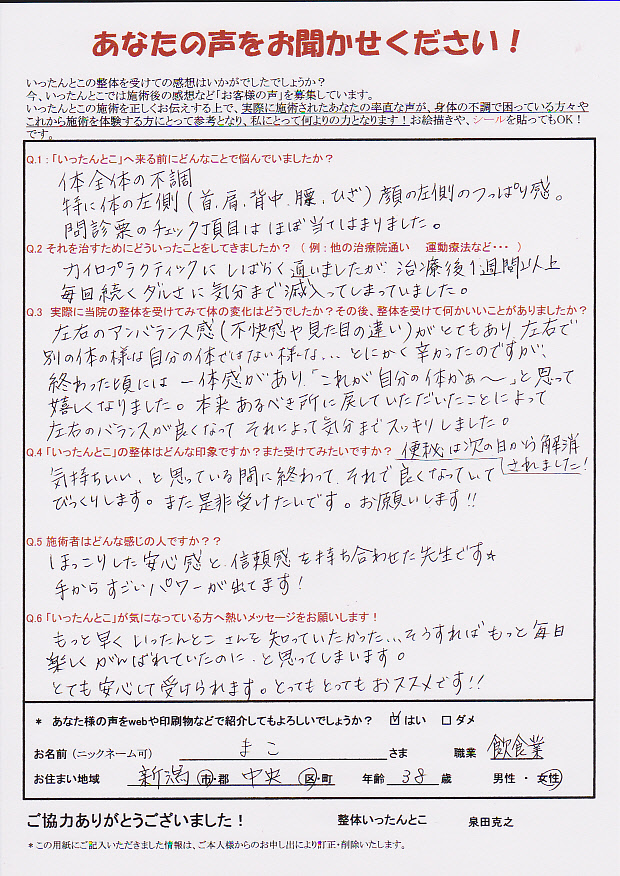 あなたの声をお聞かせください！
いったんとこの整体を受けての感想はいかがでしたでしょうか？
今、いったんとこでは施術後の感想など「お客様の声」を募集しています。
いったんとこの施術を正しくお伝えする上で、実際に施術されたあなたの率直な声が、身体の不調で困っている方々や
これから施術を体験する方にとって参考となり、私にとって何よりの力となります！お絵描きや、シールを貼ってもOK！
です。
Q.1：「いったんとこ」へ来る前にどんなことで悩んでいましたか？
体全体の不調
特に体の左側（首、肩、背中、腰、ひざ）顔の左側のつっぱり感。
問診票のチェック項目はほぼ当てはまりました。
Q.2 それを治すためにどういったことをしてきましたか？（例：他の治療院通い　運動療法など・・・）
カイロプラクティックにしばらく通いましたが、治療後1週間以上
毎回続くダルさに気分まで滅入ってしまっていました。
Q.3 実際に当院の整体を受けてみて体の変化はどうでしたか？その後、整体を受けて何かいいことがありましたか？
左右のアンバランス感（不快感や見た目の違い）がとてもあり、左右で
別の体の様な自分の体ではない様な、、、とにかく辛かったのですが、
終わった頃には一体感があり、「これが自分の体かぁ〜」と思って
嬉しくなりました。本来あるべき所に戻していただいたことによって
左右のバランスが良くなって それによって気分までスッキリしました。
便秘は次の日から解消
されました！
Q.4「いったんとこ」の整体はどんな印象ですか？また受けてみたいですか？
気持ちいい、と思っている間に終わって、それで良くなっていて
びっくりします。また是非受けたいです。お願いします!!
Q.5 施術者はどんな感じの人ですか？？
ほっこりした安心感と、信頼感を持ち合わせた先生です★
手からすごいパワーが出てます！
Q.6「いったんとこ」が気になっている方へ熱いメッセージをお願いします！
もっと早くいったんとこさんを知っていたかった、、、そうすればもっと毎日
楽しくがんばれていたのに、と思ってしまいます。
とても安心して受けられます。とってもとってもおススメです!!
＊ あなた様の声をwebや印刷物などで紹介してもよろしいでしょうか？　☑はい　□ダメ
お名前（ニックネーム可）　まこ　さま　職業　飲食業
お住まい地域　新潟 市・郡　中央 区・町　年齢　38 歳　男性・女性
ご協力ありがとうございました！　整体いったんとこ　泉田克之
＊この用紙にご記入いただきました情報は、ご本人様からのお申し出により訂正・削除いたします。